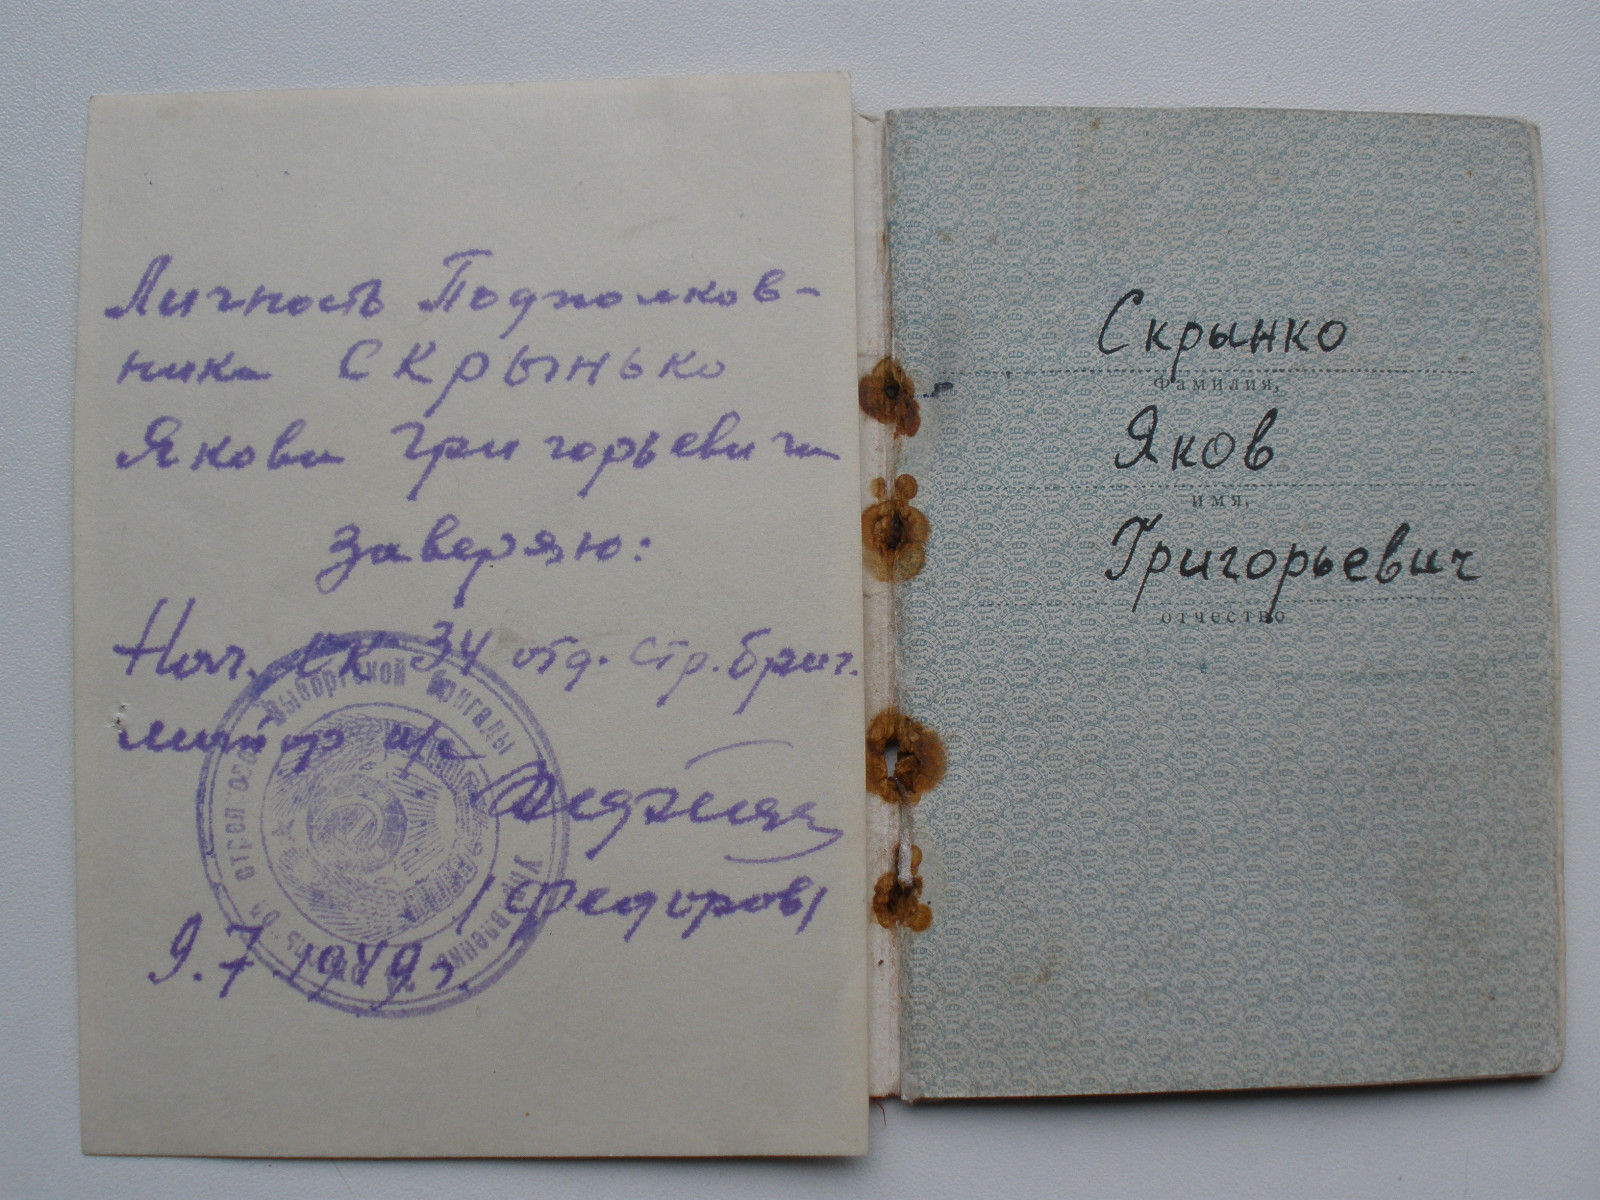 Личность Подполков-
ника СКРЫНЬКО
Якова Григорьевича
Заверяю:
Нач. 34 отд. стр. бриг.
майор и/с
/Федоров/
9.7.1949г.
Выборгской бригады
Управление
Скрынко
Фамилия,
Яков
имя,
Григорьевич
отчество